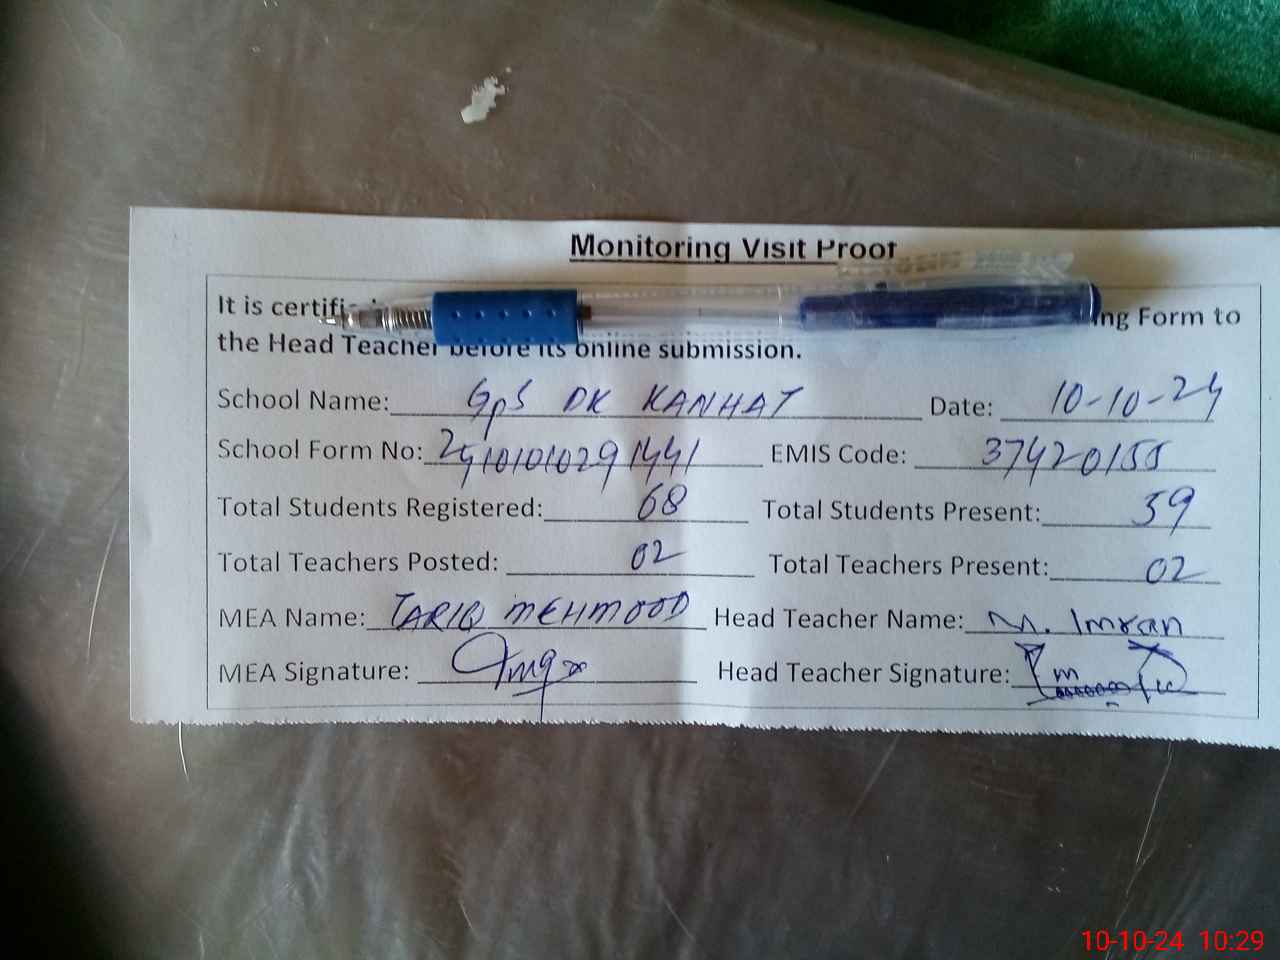 Monitoring Visit Proof
It is certifi ng Form to
the Head Teacher before its online submission.
School Name: GpS DK KANHAT Date: 10-10-24
School Form No: 29101010291441 EMIS Code: 37420155
Total Students Registered: 68 Total Students Present: 59
Total Teachers Posted: 02 Total Teachers Present: 02
MEA Name: TARIQ MEHMOOD Head Teacher Name: M. Imran
MEA Signature: Head Teacher Signature:
10-10-24 10:29